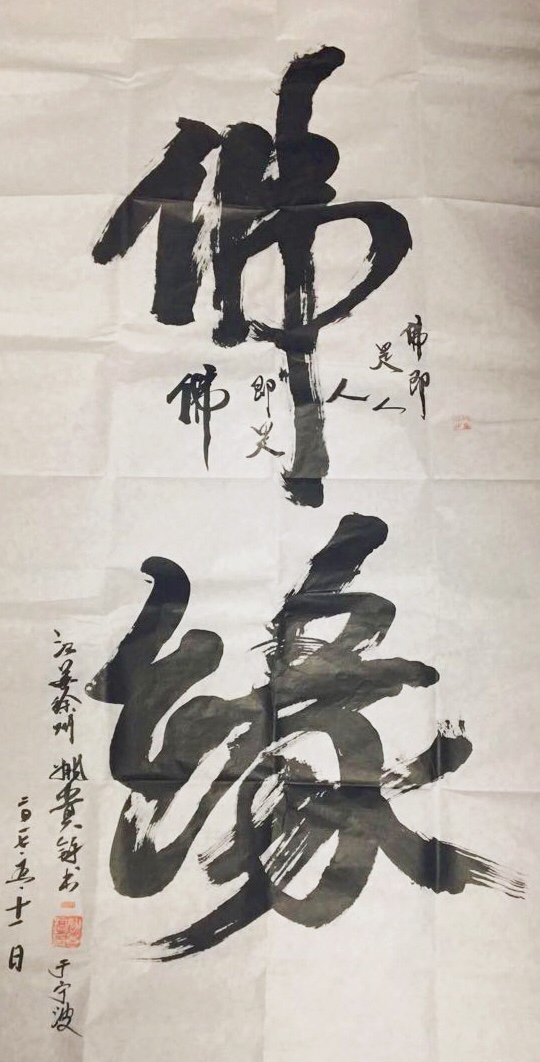 佛
缘
佛即
是人
人
即是
佛
江苏徐州 贵 书
二〇一七.五.十一日
于宁波